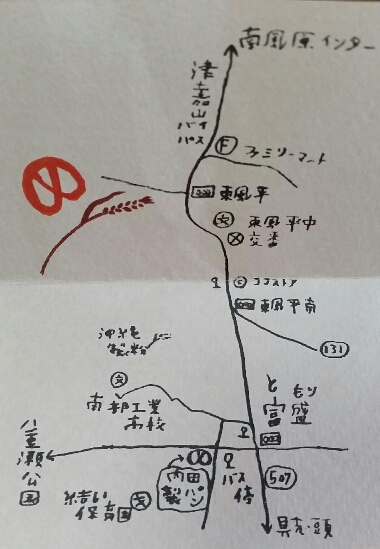 南風原インター
津嘉山バイパス
F ファミリーマート
東風平
文 東風平中
交番
C ココストア
東風平南
131
沖縄
製粉
文
南部工業
高校
ともり
富盛
八重瀬公園
内田
製パン
バス
停
507
保育園
具志頭